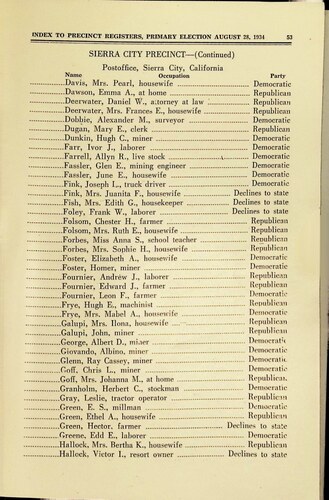 INDEX TO PRECINCT REGISTERS, PRIMARY ELECTION AUGUST 28, 1934 53
SIERRA CITY PRECINCT—(Continued)
Postoffice, Sierra City, California
Name Occupation Party
Davis, Mrs. Pearl, housewife Democratic
Dawson, Emma A., at home Republican
Deerwater, Daniel W., attorney at law Republican
Deerwater, Mrs. Frances E., housewife Republican
Dobbie, Alexander M., surveyor Democratic
Dugan, Mary E., clerk Republican
Dunkin, Hugh C., miner Democratic
Farr, Ivor J., laborer Democratic
Farrell, Allyn R., live stock Democratic
Fassler, Glen E., mining engineer Democratic
Fassler, June E., housewife Democratic
Fink, Joseph L., truck driver Democratic
Fink, Mrs. Juanita F., housewife Declines to state
Fish, Mrs. Edith G., housekeeper Declines to state
Foley, Frank W., laborer Declines to state
Folsom, Chester H., farmer Republican
Folsom, Mrs. Ruth E., housewife Republican
Forbes, Miss Anna S., school teacher Republican
Forbes, Mrs. Sophie H., housewife Republican
Foster, Elizabeth A., housewife Democratic
Foster, Homer, miner Democratic
Fournier, Andrew J., laborer Republican
Fournier, Edward J., farmer Republican
Fournier, Leon F., farmer Democratic
Frye, Hugh E., machinist Republican
Frye, Mrs. Mabel A., housewife Democratic
Galupi, Mrs. Ilona, housewife Republican
Galupi, John, miner Republican
George, Albert D., miner Democratic
Giovando, Albino, miner Democratic
Glenn, Ray Cassey, miner Democratic
Goff, Chris L., miner Democratic
Goff, Mrs. Johanna M., at home Republican
Granholm, Herbert C., stockman Democratic
Gray, Leslie, tractor operator Republican
Green, E. S., millman Democratic
Green, Ethel A., housewife Republican
Green, Hector, farmer Declines to state
Greene, Edd E., laborer Democratic
Hallock, Mrs. Bertha K., housewife Republican
Hallock, Victor I., resort owner Declines to state